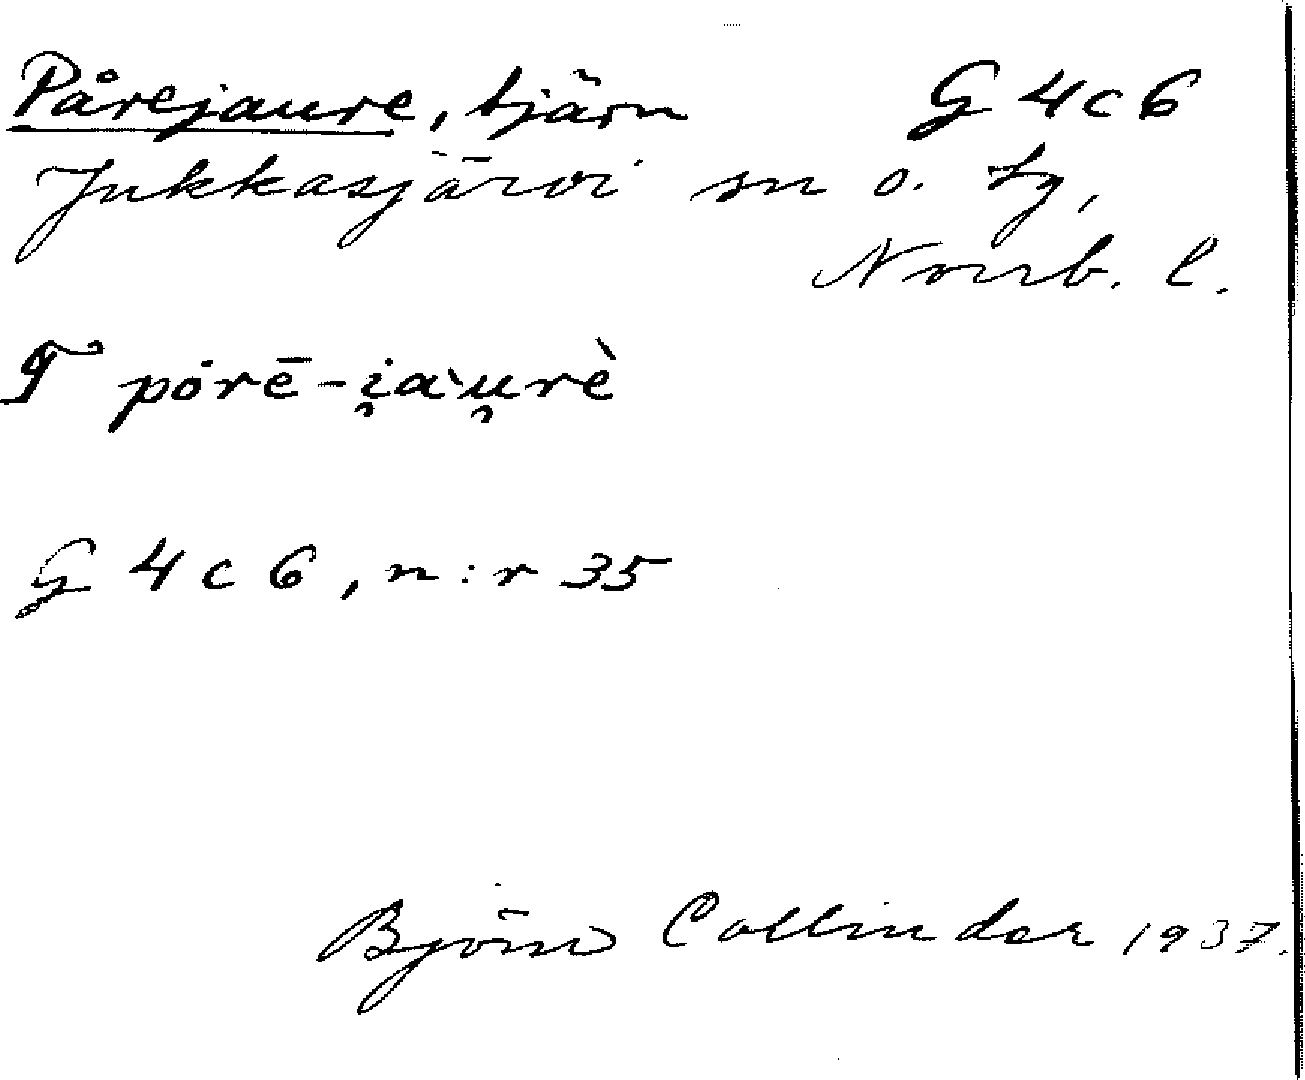 Pårejaure, tjärn G 4 c 6
Jukkasjärvi sn o. tg,
Norrb. l.
T pȯrē-i̯aˋu̯rè
G 4 c 6, n:r 35
Björn Collinder 1937.